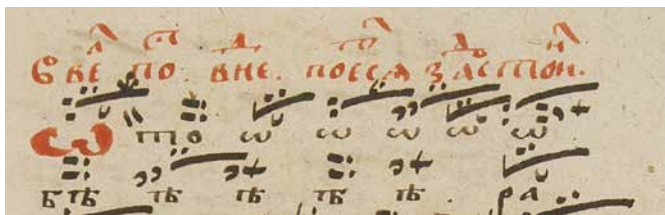 в веⷧ поⷭⷮ в неⷣ. поесѧⷮ заⷣстоиⷩ.
Ѡ то ѡ ѡ ѡ ѡ ѡ
бтѣ тѣ тѣ тѣ тѣ ра